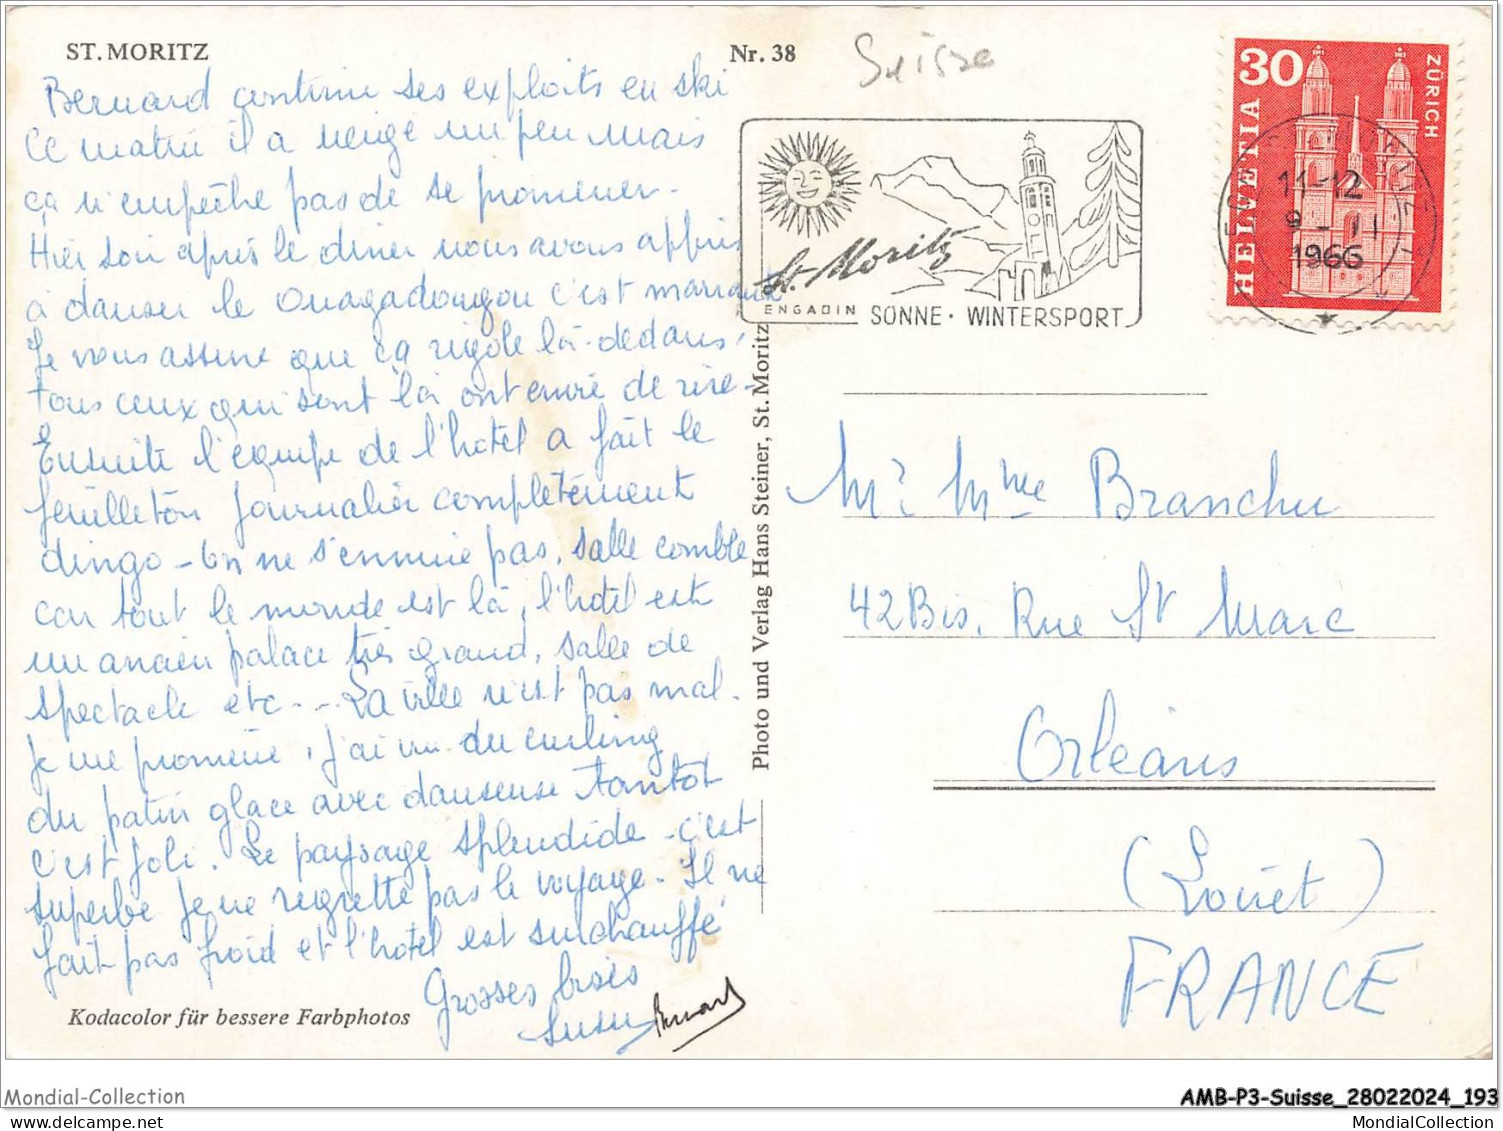 ST. MORITZ
Nr. 38
Suisse
Bernard continue ses exploits en ski
Ce matin il a neigé un peu mais
ça n'empêche pas de se promener -
Hier soir après le diner nous avons appris
à danser le Ouagadougou c'est marrant
Je vous assure que ça rigole là-dedans,
tous ceux qui sont là ont envie de rire -
Ensuite l'équipe de l'hotel a fait le
feuilleton journalier complètement
dingo - On ne s'ennuie pas, salle comble
car tout le monde est là, l'hotel est
un ancien palace très grand, salle de
spectacle etc... La ville n'est pas mal.
Je me promène, j'ai vu du curling
du patin glace avec danseuse tantot
c'est joli. Le paysage splendide - c'est
superbe je ne regrette pas le voyage - Il ne
fait pas froid et l'hotel est surchauffé
Grosses bises
Susu Bernard
Kodacolor für bessere Farbphotos
Photo und Verlag Hans Steiner, St. Moritz
St. Moritz
ENGADIN SONNE · WINTERSPORT
HELVETIA
30
ZÜRICH
11-12
9 - II
1966
Mr Mme Branchu
42 Bis, Rue St Marc
Orléans
(Loiret)
FRANCE
Mondial-Collection
AMB-P3-Suisse_28022024_193
mondial-collection.delcampe.net
MondialCollection